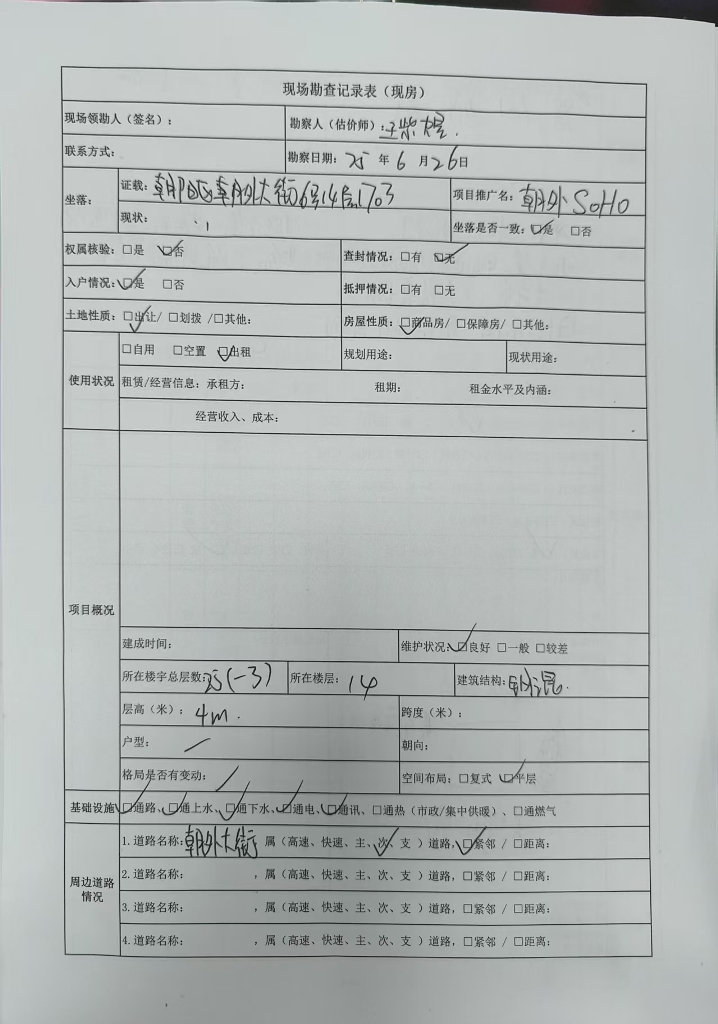 现场勘查记录表（现房）
现场领勘人（签名）： 勘察人（估价师）：
联系方式： 勘察日期：25 年 6 月 26 日
坐落： 证载：朝阳区朝外大街6号14层1703 项目推广名：朝外SOHO
现状： 坐落是否一致：☑是 □否
权属核验：□是 ☑否 查封情况：□有 ☑无
入户情况：☑是 □否 抵押情况：□有 □无
土地性质：☑出让/ □划拨 /□其他： 房屋性质：☑商品房/ □保障房/ □其他：
使用状况 □自用 □空置 ☑出租 规划用途： 现状用途：
租赁/经营信息：承租方： 租期： 租金水平及内涵：
经营收入、成本：
项目概况
建成时间： 维护状况：☑良好 □一般 □较差
所在楼宇总层数：25(-3) 所在楼层：14 建筑结构：钢混.
层高（米）：4m. 跨度（米）：
户型：／ 朝向：
格局是否有变动：／ 空间布局：□复式 ☑平层
基础设施 ☑通路、☑通上水、☑通下水、☑通电、☑通讯、□通热（市政/集中供暖）、□通燃气
周边道路情况 1.道路名称：朝外大街 属（高速、快速、主、次、支 ）道路，☑紧邻 / □距离：
2.道路名称： ，属（高速、快速、主、次、支 ）道路，□紧邻 / □距离：
3.道路名称： ，属（高速、快速、主、次、支 ）道路，□紧邻 / □距离：
4.道路名称： ，属（高速、快速、主、次、支 ）道路，□紧邻 / □距离：